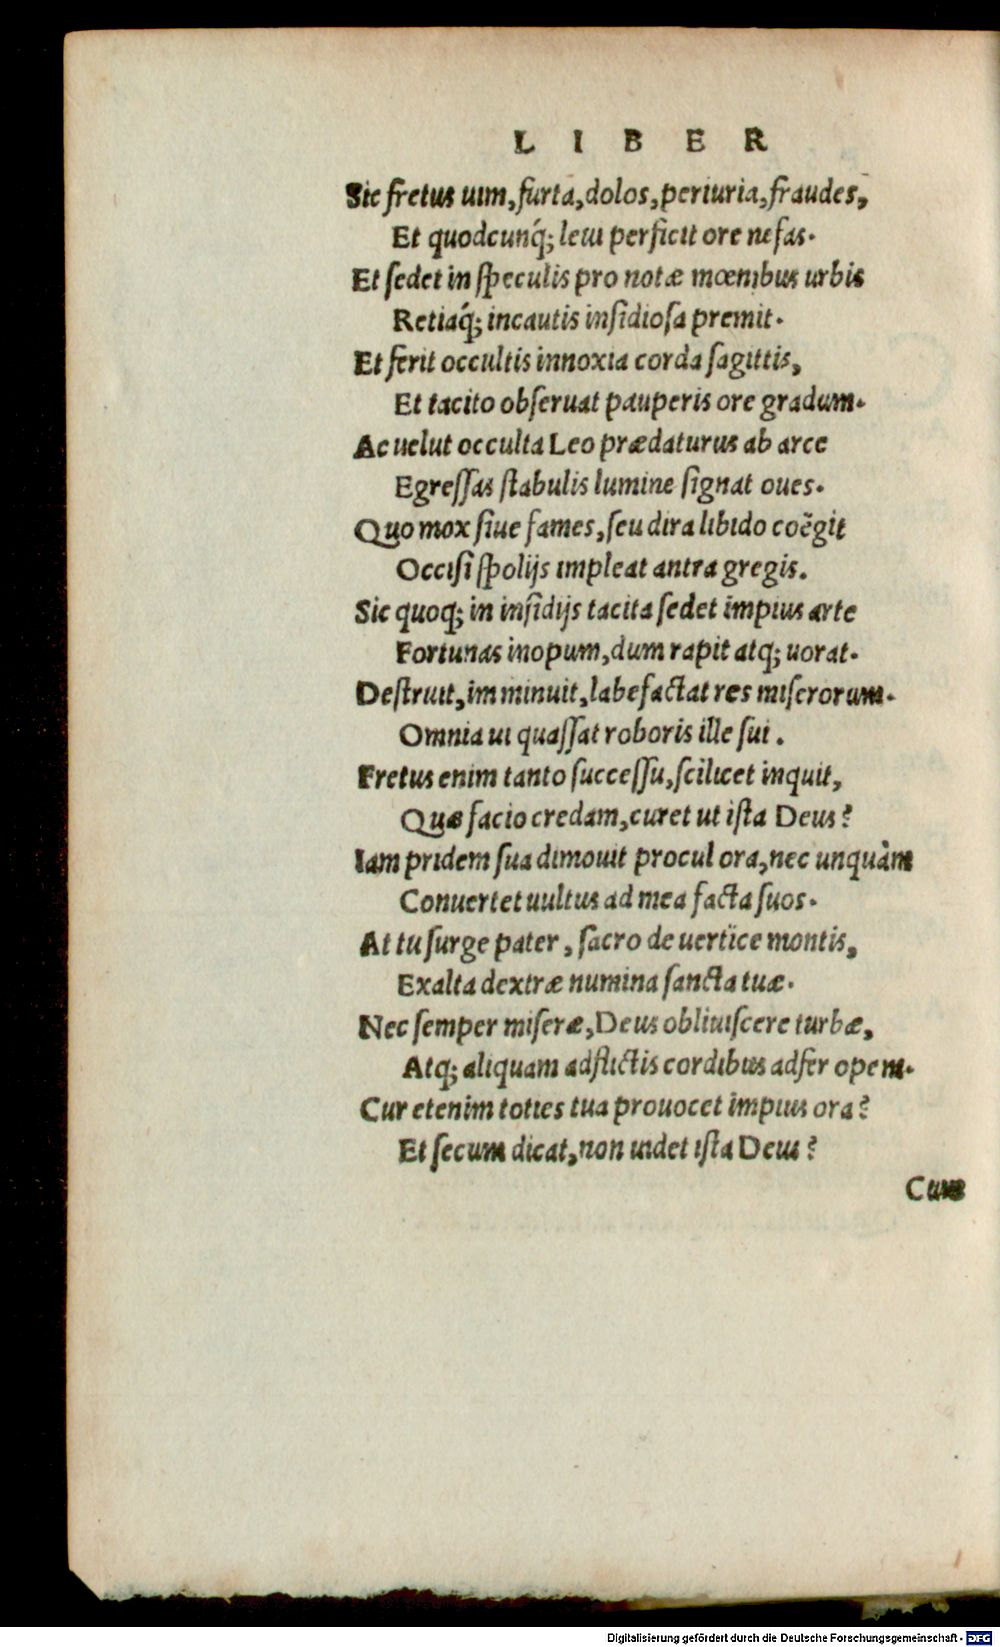 L I B E R
Sic fretus uim, furta, dolos, periuria, fraudes,
Et quodcunq́; leui perficit ore nefas.
Et ſedet in ſpeculis pro notæ mœnibus urbis
Retiaq́; incautis inſidioſa premit.
Et ferit occultis innoxia corda ſagittis,
Et tacito obſeruat pauperis ore gradum.
Ac uelut occulta Leo prædaturus ab arce
Egreſſas ſtabulis lumine ſignat oues.
Quo mox ſiue fames, ſeu dira libido coẽgit
Occiſi ſpolijs impleat antra gregis.
Sic quoq; in inſidijs tacita ſedet impius arte
Fortunas inopum, dum rapit atq; uorat.
Deſtruit, imminuit, labefactat res miſerorum.
Omnia ui quaſſat roboris ille ſui.
Fretus enim tanto ſucceſſu, ſcilicet inquit,
Quæ facio credam, curet ut iſta Deus?
Iam pridem ſua dimouit procul ora, nec unquàm
Conuertet uultus ad mea facta ſuos.
At tu ſurge pater, ſacro de uertice montis,
Exalta dextræ numina ſancta tuæ.
Nec ſemper miſeræ, Deus obliuiſcere turbæ,
Atq; aliquam adflictis cordibus adfer opem.
Cur etenim toties tua prouocet impius ora?
Et ſecum dicat, non uidet iſta Deus?
Cum
Digitalisierung gefördert durch die Deutsche Forschungsgemeinschaft - DFG